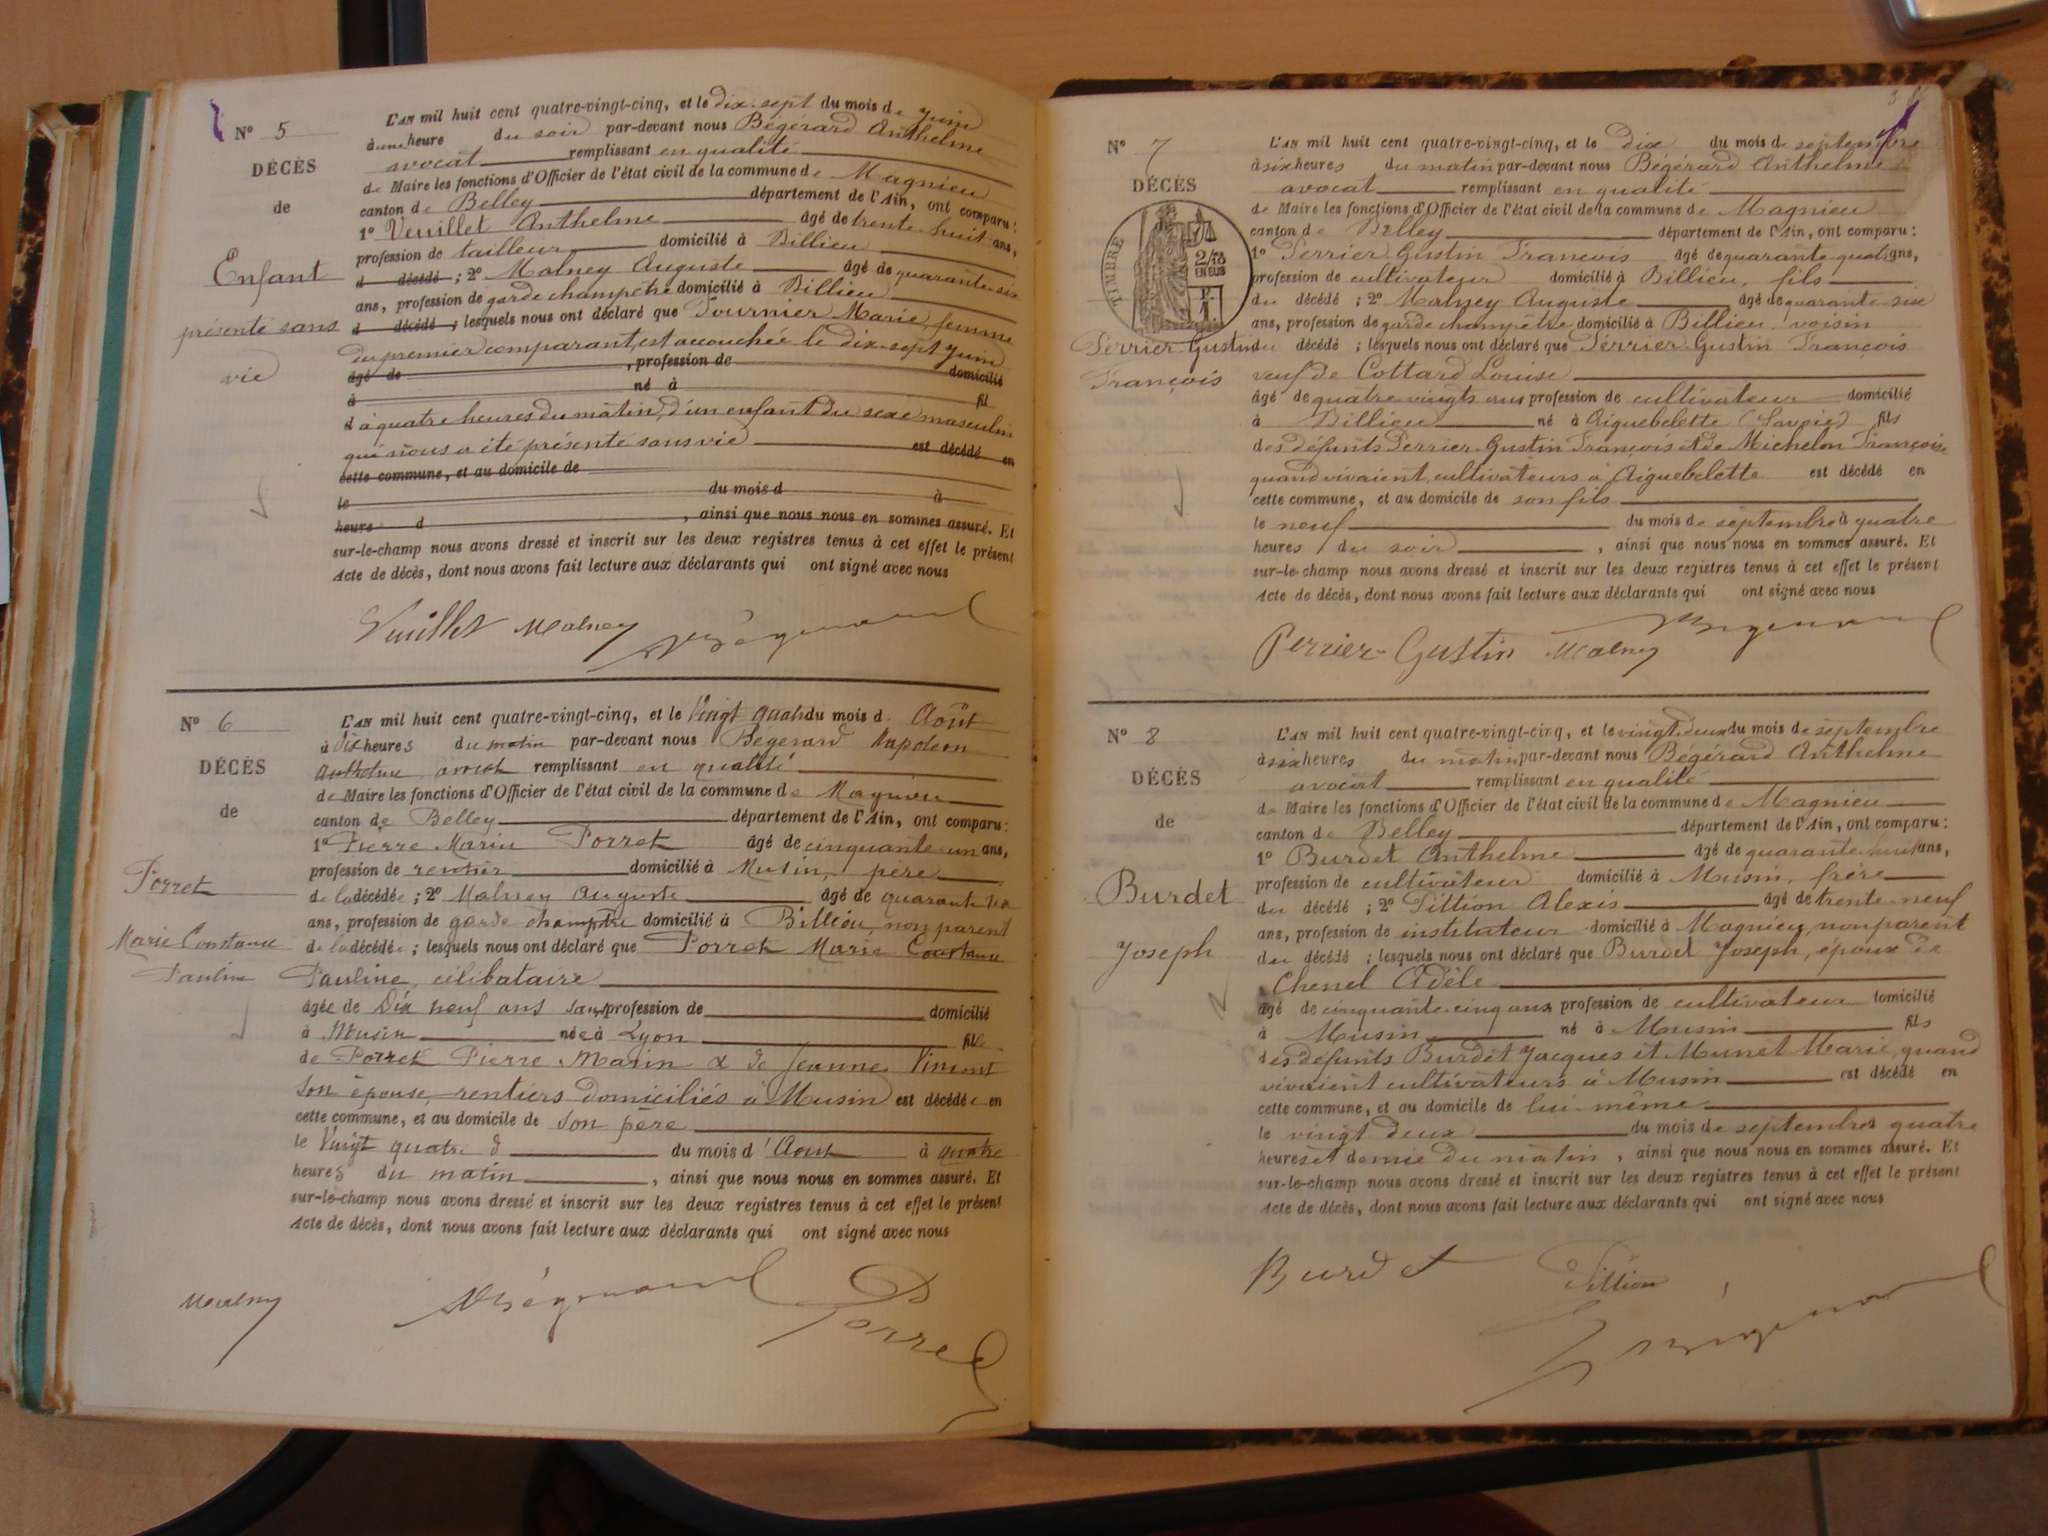 N° 5
DÉCÈS
de
Enfant
présenté sans
vie
L'AN mil huit cent quatre-vingt-cinq, et le dix-sept du mois de Juin
à une heure du soir par-devant nous Bégérard Anthelme
avocat remplissant en qualité
de Maire les fonctions d'Officier de l'état civil de la commune de Magnieu
canton de Belley département de l'Ain, ont comparu :
1° Veuillet Anthelme âgé de trente-huit ans,
profession de tailleur domicilié à Billieu
d décédé ; 2° Malney Auguste âgé de quarante-six
ans, profession de garde champêtre domicilié à Billieu
d décédé ; lesquels nous ont déclaré que Fournier Marie, femme
du premier comparant, est accouchée le dix-sept Juin
âgé de , profession de domicilié
à né à fil
d à quatre heures du matin, d'un enfant du sexe masculin
qui nous a été présenté sans vie est décédé en
cette commune, et au domicile de
le du mois d à
heure d , ainsi que nous nous en sommes assuré. Et
sur-le-champ nous avons dressé et inscrit sur les deux registres tenus à cet effet le présent
Acte de décès, dont nous avons fait lecture aux déclarants qui ont signé avec nous
Vuillet Malney Bégérard
N° 6
DÉCÈS
de
Porret
Marie Constance
Pauline
L'AN mil huit cent quatre-vingt-cinq, et le Vingt quatre du mois d Août
à Dix heures du matin par-devant nous Bégérard Napoléon
Anthelme avocat remplissant en qualité
de Maire les fonctions d'Officier de l'état civil de la commune de Magnieu
canton de Belley département de l'Ain, ont comparu :
1° Pierre Marin Porret âgé de cinquante-un ans,
profession de rentier domicilié à Musin, père
de la décédée ; 2° Malney Auguste âgé de quarante six
ans, profession de garde champêtre domicilié à Billieu, non parent
de la décédée ; lesquels nous ont déclaré que Porret Marie Constance
Pauline, célibataire
âgée de Dix neuf ans sans profession de domicilié
à Musin née à Lyon fille
de Porret Pierre Marin & de Jeanne Vincent
son épouse, rentiers domiciliés à Musin est décédée en
cette commune, et au domicile de son père
le Vingt quatre d du mois d'Aout à quatre
heures du matin , ainsi que nous nous en sommes assuré. Et
sur-le-champ nous avons dressé et inscrit sur les deux registres tenus à cet effet le présent
Acte de décès, dont nous avons fait lecture aux déclarants qui ont signé avec nous
Malney Bégérard Porret
N° 7
DÉCÈS
TIMBRE
2/10
EN SUS
Perrier-Gustin
François
L'AN mil huit cent quatre-vingt-cinq, et le dix du mois de septembre
à six heures du matin par-devant nous Bégérard Anthelme
avocat remplissant en qualité
de Maire les fonctions d'Officier de l'état civil de la commune de Magnieu
canton de Belley département de l'Ain, ont comparu :
1° Perrier-Gustin François âgé de quarante-quatre ans,
profession de cultivateur domicilié à Billieu, fils
du décédé ; 2° Malney Auguste âgé de quarante-six
ans, profession de garde champêtre domicilié à Billieu, voisin
du décédé ; lesquels nous ont déclaré que Perrier-Gustin François
veuf de Cottard Louise
âgé de quatre vingts ans profession de cultivateur domicilié
à Billieu né à Aiguebelette (Savoie) fils
des défunts Perrier-Gustin François et de Michelon Françoise
quand vivaient cultivateurs à Aiguebelette est décédé en
cette commune, et au domicile de son fils
le neuf du mois de septembre à quatre
heures du soir , ainsi que nous nous en sommes assuré. Et
sur-le-champ nous avons dressé et inscrit sur les deux registres tenus à cet effet le présent
Acte de décès, dont nous avons fait lecture aux déclarants qui ont signé avec nous
Perrier-Gustin Malney Bégérard
N° 8
DÉCÈS
de
Burdet
Joseph
L'AN mil huit cent quatre-vingt-cinq, et le vingt-deux du mois de septembre
à six heures du matin par-devant nous Bégérard Anthelme
avocat remplissant en qualité
de Maire les fonctions d'Officier de l'état civil de la commune de Magnieu
canton de Belley département de l'Ain, ont comparu :
1° Burdet Anthelme âgé de quarante-huit ans,
profession de cultivateur domicilié à Musin, frère
du décédé ; 2° Tittion Alexis âgé de trente-neuf
ans, profession de instituteur domicilié à Magnieu, non parent
du décédé ; lesquels nous ont déclaré que Burdet Joseph, époux de
Chenel Adèle
âgé de cinquante-cinq ans profession de cultivateur domicilié
à Musin né à Musin fils
des défunts Burdet Jacques et Munet Marie, quand
vivaient cultivateurs à Musin est décédé en
cette commune, et au domicile de lui-même
le vingt deux du mois de septembre à quatre
heures et demie du matin , ainsi que nous nous en sommes assuré. Et
sur-le-champ nous avons dressé et inscrit sur les deux registres tenus à cet effet le présent
Acte de décès, dont nous avons fait lecture aux déclarants qui ont signé avec nous
Burdet Tittion Bégérard